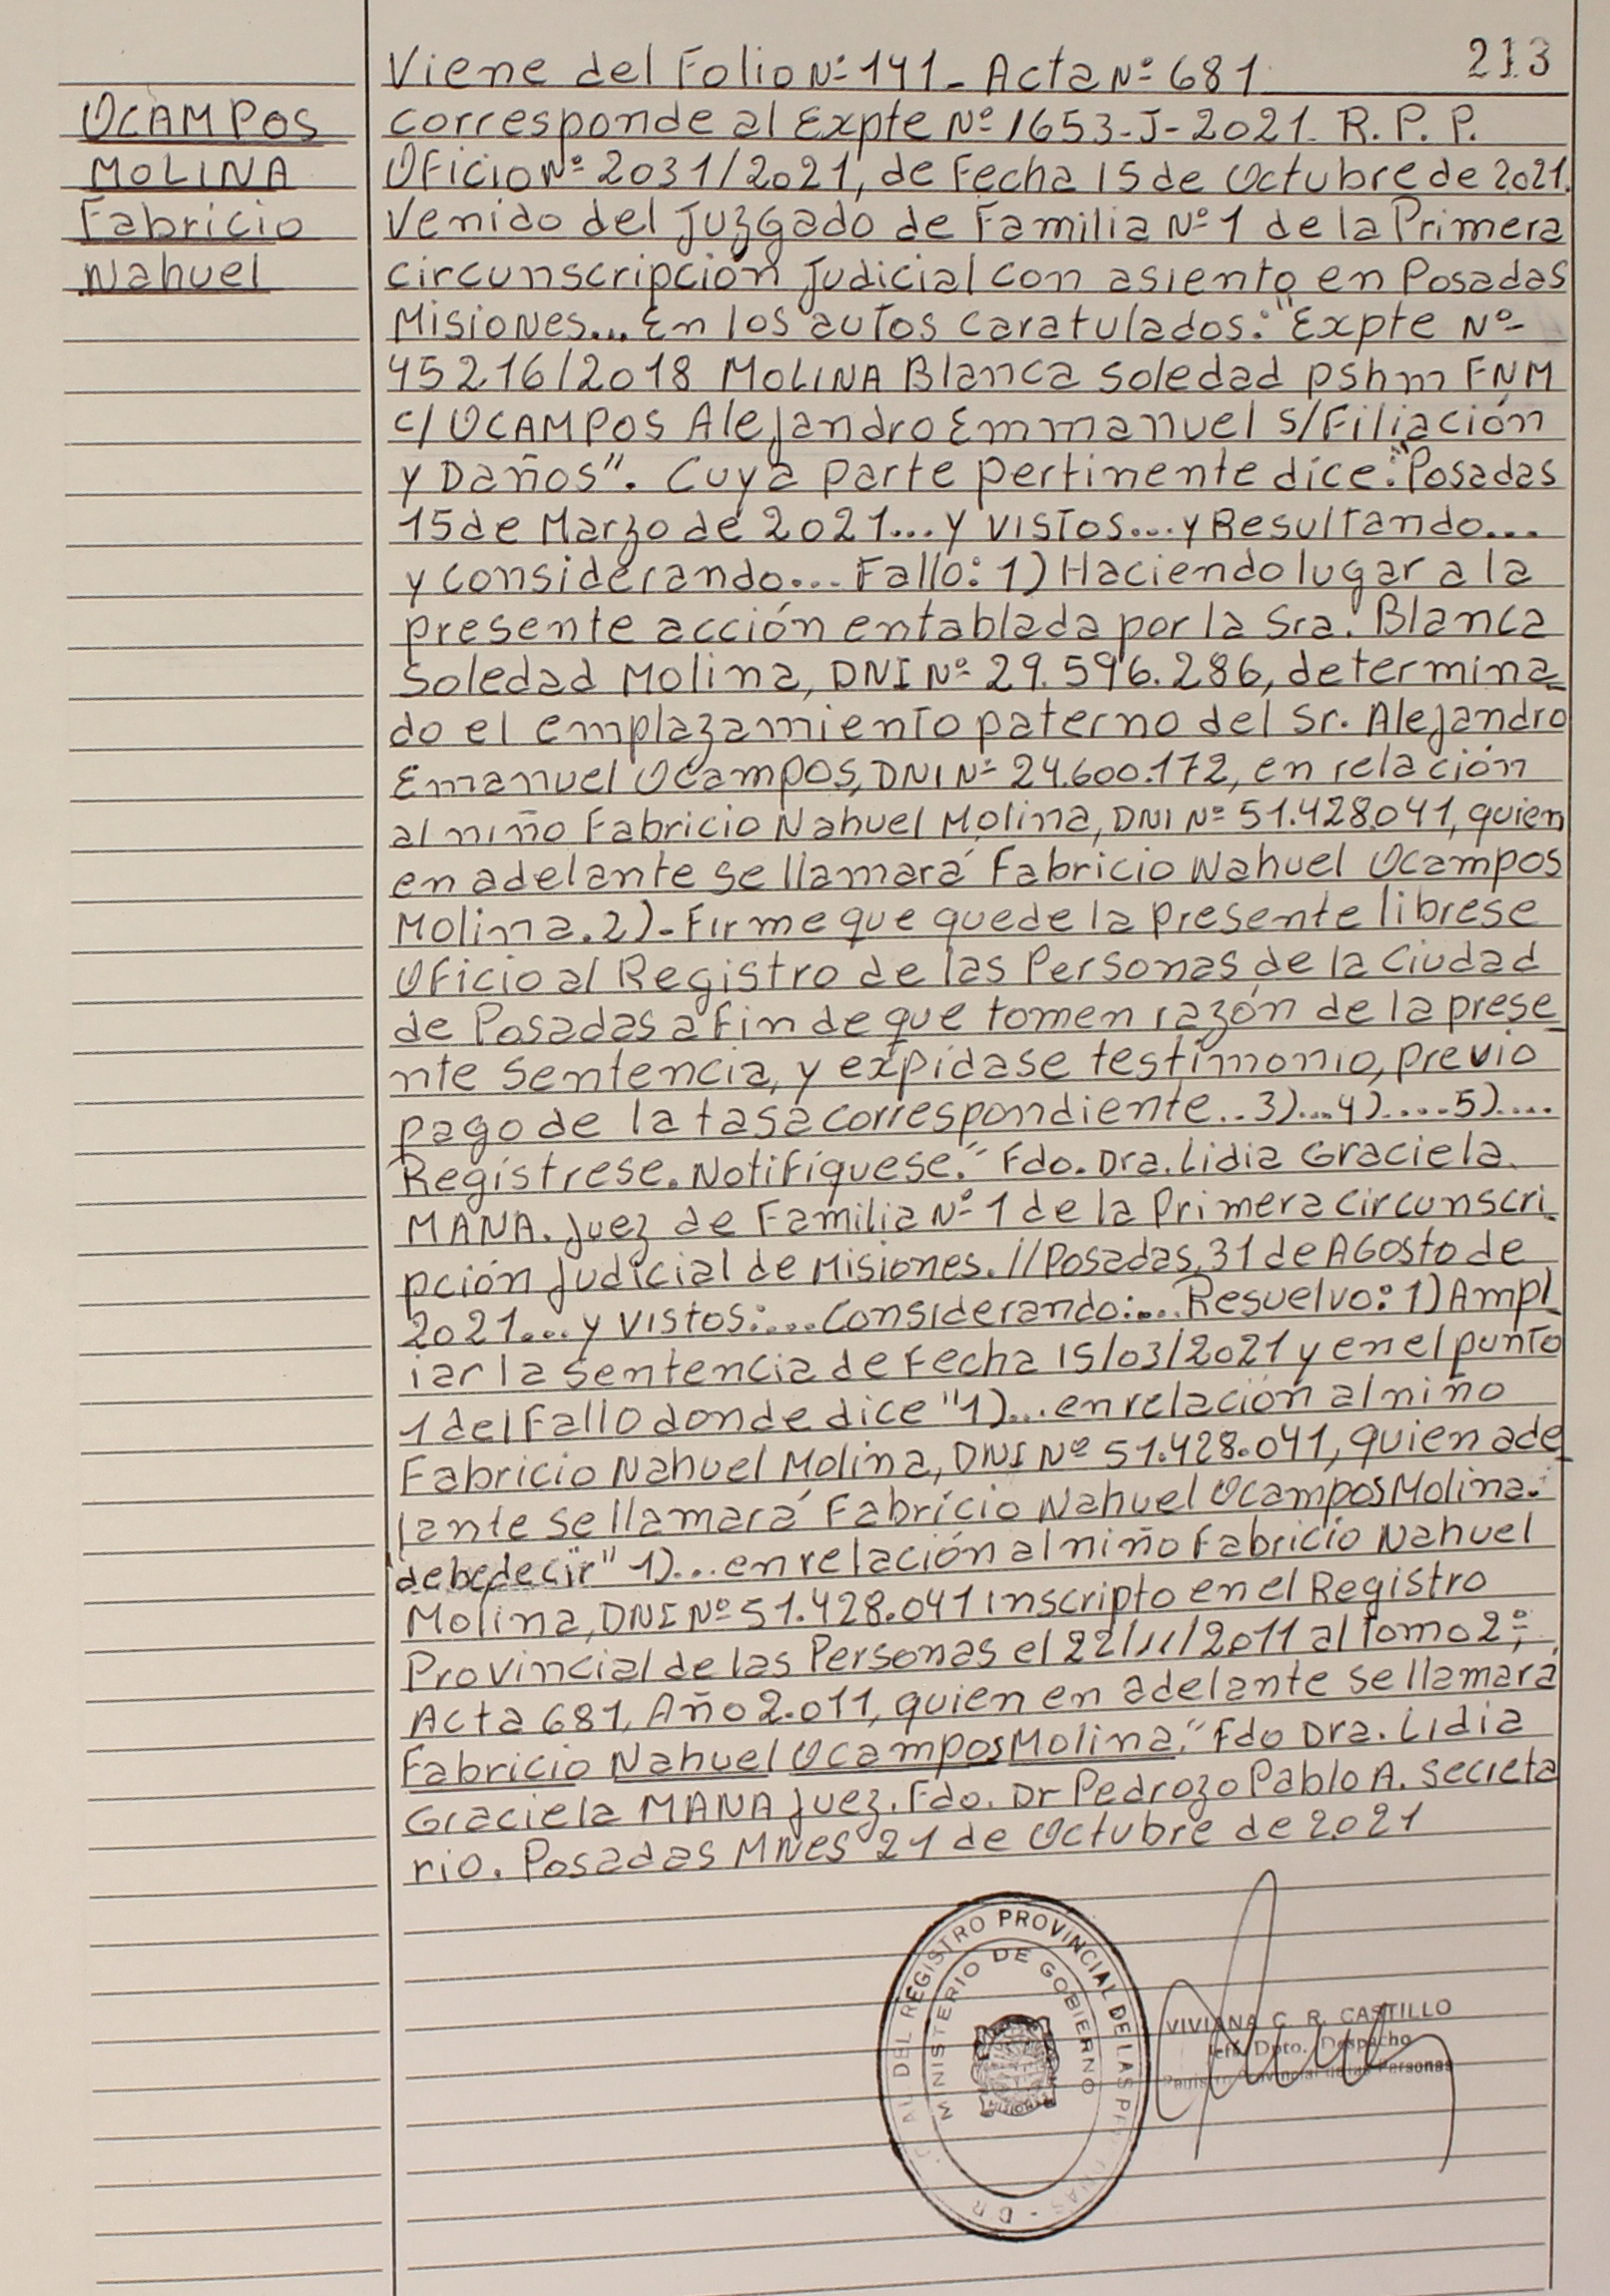 213
OCAMPOS
MOLINA
Fabricio
Nahuel
Viene del Folio Nº 141- Acta Nº 681
corresponde al Expte Nº 1653-J-2021. R.P.P.
Oficio Nº 2031/2021, de Fecha 15 de Octubre de 2021.
Venido del Juzgado de Familia Nº 1 de la Primera
circunscripción Judicial con asiento en Posadas
Misiones... En los autos caratulados: "Expte Nº
45216/2018 MOLINA Blanca Soledad pshm FNM
c/ OCAMPOS Alejandro Emmanuel S/Filiación
y Daños". Cuya parte pertinente dice: "Posadas
15 de Marzo de 2021... y VISTOS... y Resultando...
y considerando... Fallo: 1) Haciendo lugar a la
presente acción entablada por la Sra. Blanca
Soledad Molina, DNI Nº 29.596.286, determina
do el emplazamiento paterno del Sr. Alejandro
Emanuel Ocampos, DNI Nº 24.600.172, en relación
al niño Fabricio Nahuel Molina, DNI Nº 51.428.041, quien
en adelante se llamará Fabricio Nahuel Ocampos
Molina. 2)- Firme que quede la presente librese
Oficio al Registro de las Personas de la Ciudad
de Posadas a fin de que tomen razón de la prese
nte sentencia, y expídase testimonio, previo
pago de la tasa correspondiente.. 3)...4)....5)....
Regístrese. Notifíquese." Fdo. Dra. Lidia Graciela
MANA. Juez de Familia Nº 1 de la Primera circunscri
pción Judicial de Misiones. //Posadas, 31 de Agosto de
2021.... y VISTOS:....Considerando:... Resuelvo: 1) Ampl
iar la sentencia de Fecha 15/03/2021 y en el punto
1 del Fallo donde dice "1)... en relación al niño
Fabricio Nahuel Molina, DNI Nº 51.428.041, quien ade
lante se llamará Fabricio Nahuel Ocampos Molina."
debe decir" 1)... en relación al niño Fabricio Nahuel
Molina, DNI Nº 51.428.041 inscripto en el Registro
Provincial de las Personas el 22/11/2011 al Tomo 2º;
Acta 681, Año 2.011, quien en adelante se llamará
Fabricio Nahuel Ocampos Molina." Fdo Dra. Lidia
Graciela MANA Juez. Fdo. Dr Pedrozo Pablo A. secreta
rio. Posadas MNES 21 de Octubre de 2021
DEL REGISTRO PROVINCIAL DE LAS
MINISTERIO DE GOBIERNO
MISIONES
VIVIANA C. R. CASTILLO
Jefa Dpto. Despacho
Registro Provincial de las Personas